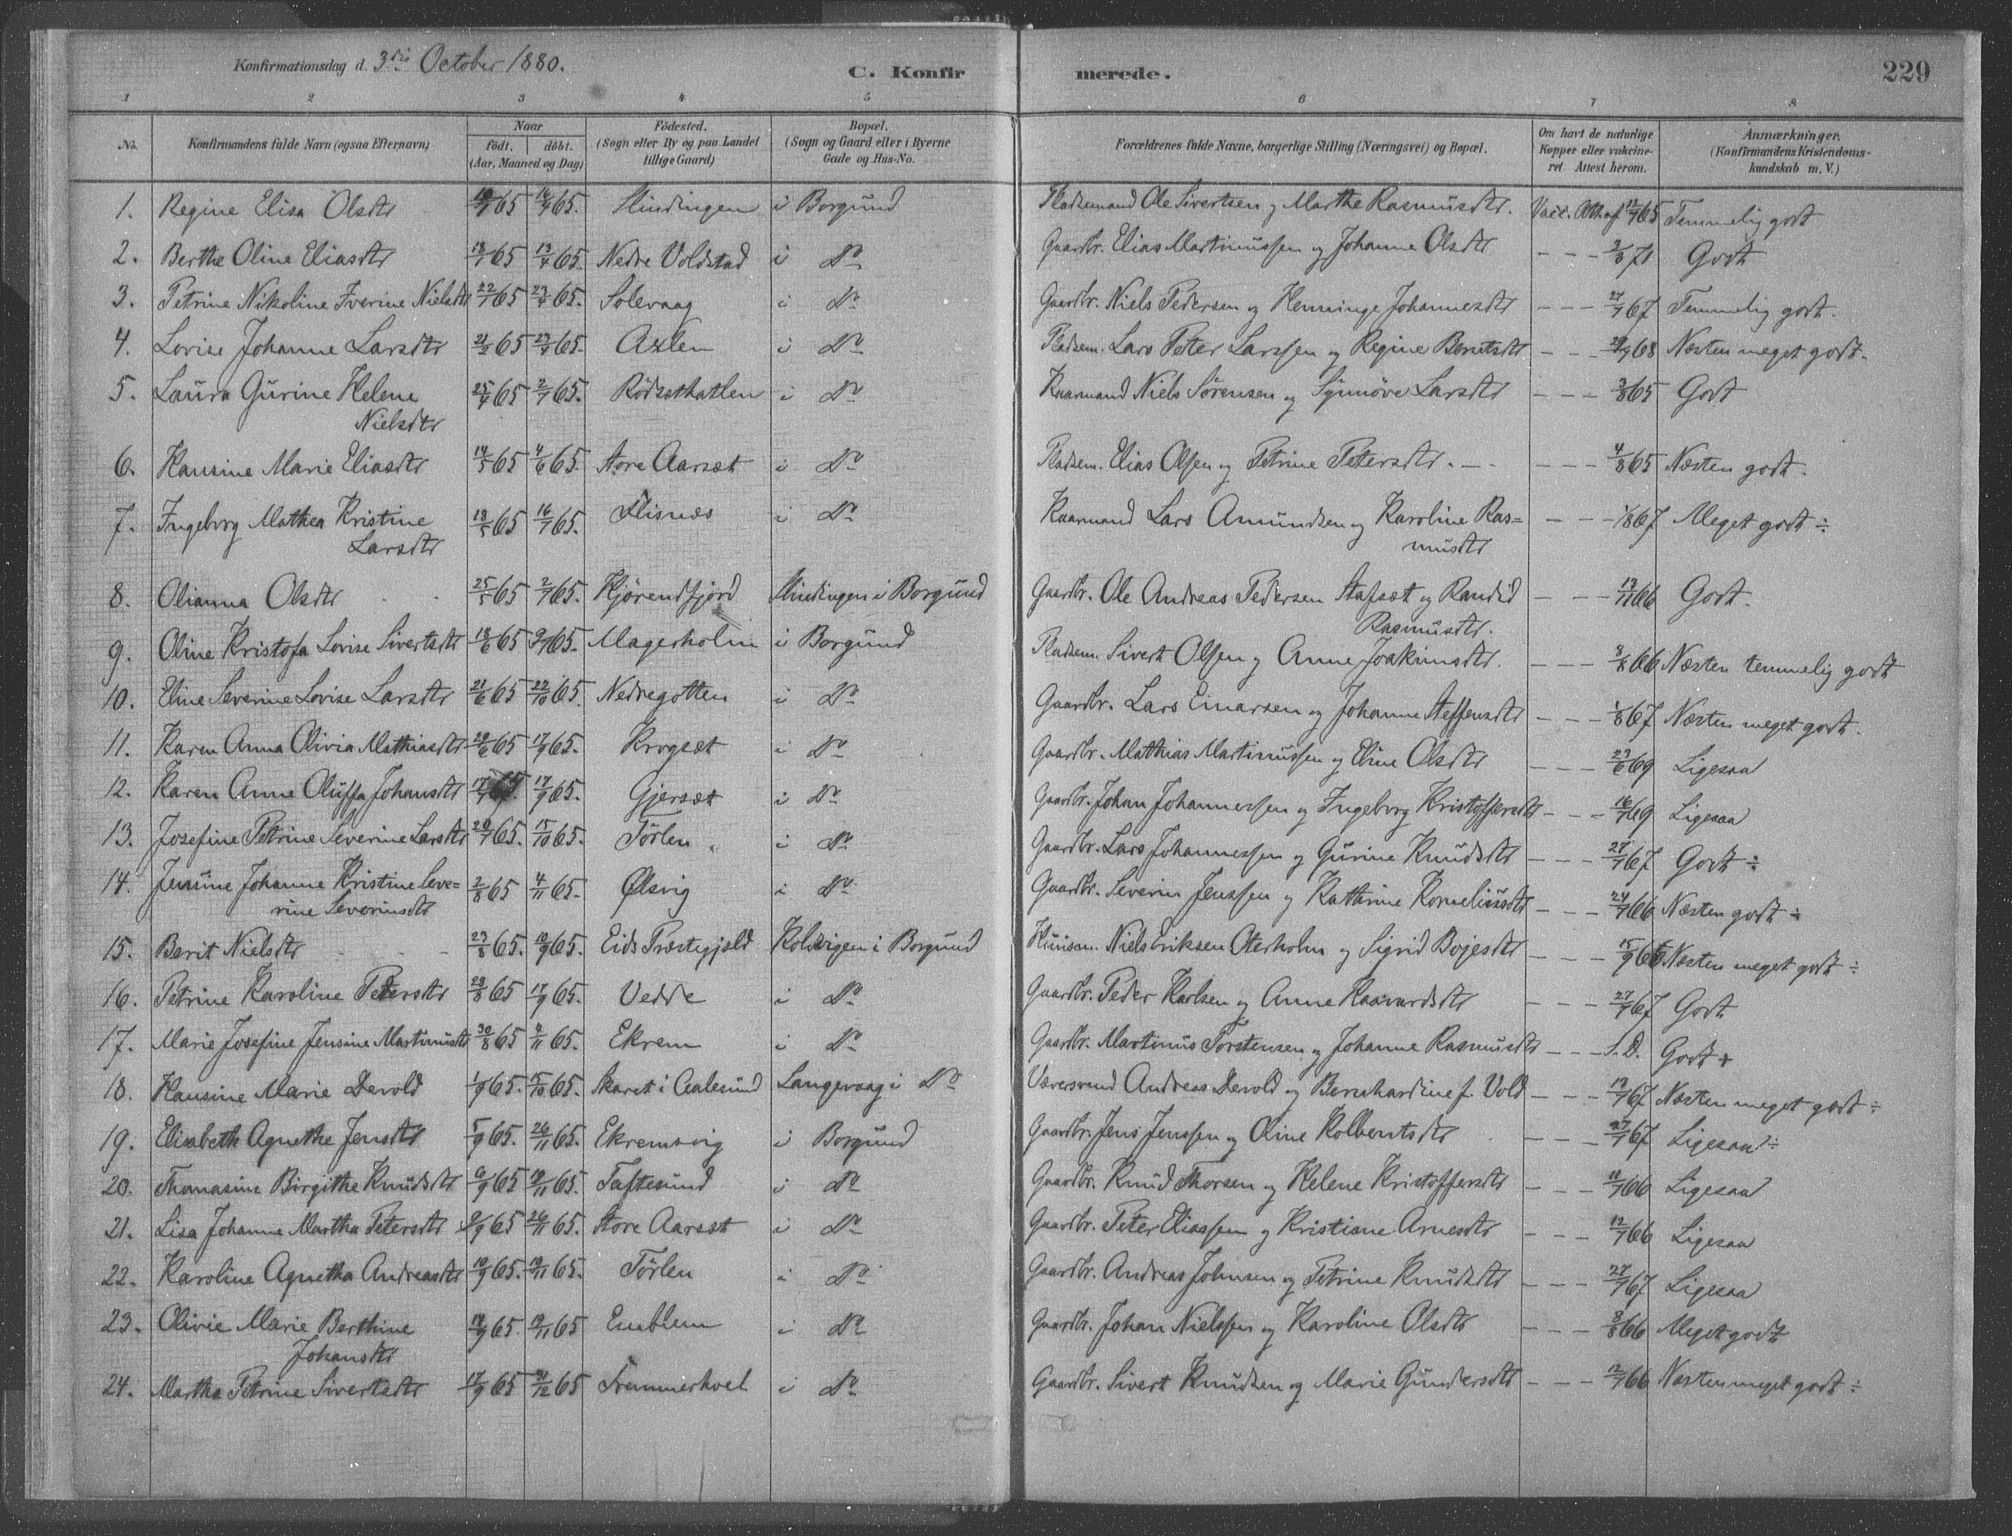 Konfirmationsdag d. 3die October 1880. C. Konfir merede. 229
1 2 3 4 5 6 7 8
No. Konfirmandens fulde Navn (ogsaa Efternavn) Naar født. døbt. (Aar, Maaned og Dag) Fødested. (Sogn eller By og paa Landet tillige Gaard) Bopæl. (Sogn og Gaard eller i Byerne Gade og Hus-No. Forældrenes fulde Navne, borgerlige Stilling (Næringsvei) og Bopæl. Om havt de naturlige Kopper eller vakcineret. Attest herom. Anmærkninger. (Konfirmandens Kristendomskundskab m. V.)
1. Regine Elisa Olsdtr 65 16/4 65. i Borgund Pladsemand Ole Sivertsen og Marthe Rasmusdtr. Vacc. 65 Temmelig godt
2. Berthe Oline Eliasdtr 65 17/4 65. Nedre Voldstad i Do Gaardbr. Elias Martinussen og Johanne Olsdtr - - - 71 Godt
3. Petrine Nikoline Iverine Nielsdtr 22/1 65 23/4 65. Solevaag i Do Gaardbr. Niels Pedersen og Henninge Johannesdtr - - - 27/7 67 Temmelig godt.
4. Lovise Johanne Larsdtr 21/2 65 23/4 65. Axlen i Do Pladsem. Lars Peter Larssen og Regine Berntsdtr - - - 68 Næsten meget godt.
5. Laura Gurine Helene Nielsdtr 25/4 65 2/7 65. Rødsethatlen i Do Kaarmand Niels Sørensen og Synnøve Larsdtr - - - 3/8 65 Godt
6. Hansine Marie Eliasdtr 14/5 65 4/6 65. Store Aarsæt i Do Pladsem. Elias Olsen og Petrine Petersdtr. - - - - 4/8 65 Næsten godt.
7. Ingeborg Mathea Kristine Larsdtr 18/5 65 16/7 65. Flisnæs i Do Kaarmand Lars Amundsen og Karoline Rasmusdtr - - - 1/8 67 Meget godt ÷
8. Olianna Olsdtr 25/5 65 2/7 65. Hjørendfjord i Borgund Gaardbr. Ole Andreas Pedersen Stafsæt og Randid Rasmusdtr. - - - 13/11 66 Godt.
9. Oline Kristofa Lovise Sivertsdtr 18/6 65 9/7 65. Magerholm i Borgund Pladsem. Sivert Olsen og Anne Joakimsdtr. - - - 3/8 66 Næsten temmelig godt
10. Eline Severine Lovise Larsdtr 21/6 65 22/10 65. Nedregotten i Do Gaardbr. Lars Einarsen og Johanne Steffensdtr - - - 1/8 67 Næsten meget godt.
11. Karen Anna Olivia Mathiasdtr 29/6 65 17/9 65. Krogsæt i Do Gaardbr. Mathias Martinussen og Eline Olsdtr - - - 23/6 69 Ligesaa
12. Karen Anne Oluffa Johansdtr 17/7 65. 17/9 65. Gjersæt i Do Gaardbr. Johan Johannessen og Ingeborg Kristoffersdtr - - - 16/7 69 Ligesaa
13. Josefine Petrine Severine Larsdtr 65. 15/10 65. Tørlen i Do Gaardbr. Lars Johannessen og Gurine Knudsdtr - - - 27/7 67 Godt ÷
14. Jensine Johanne Kristine Severine Severinsdtr 2/8 65 4/11 65. Ølsvig i Do Gaardbr. Severin Jenssen og Kathrine Korneliusdtr - - - 24/7 66 Næsten godt ÷
15. Berit Nielsdtr 23/8 65. 10/9 65. Eids Præstegjæld Kolvigen i Borgund Huusm. Niels Eriksen Oterholm og Sigrid Bojesdtr - - - 15/9 66 Næsten meget godt ÷
16. Petrine Karoline Petersdtr 28/8 65 17/9 65. Vedde i Do Gaardbr. Peder Karlsen og Anne Haavardsdtr - - - 27/7 67 Godt
17. Marie Josefine Jensine Martinusdtr 30/8 65 4/11 65. Ekrem i Do Gaardbr. Martinus Torstensen og Johanne Rasmusdtr - - - S. D. Godt +
18. Hansine Marie Devold 1/9 65. 15/10 65. Skaret i Aalesund Langevaag i Do Væversvend Andreas Devold og Bernhardine f. Vold - - - 67 Næsten meget godt ÷
19. Elisabeth Agnethe Jensdtr 5/9 65. 26/11 65. Ekremsvig i Borgund Gaardbr. Jens Jenssen og Oline Kolbentsdtr - - - 27/7 67 Ligesaa ÷
20. Thomasine Birgithe Knudsdtr 6/9 65 65. Taftesund i Do Gaardbr. Knud Thorsen og Helene Kristoffersdtr - - - 66 Ligesaa
21. Lisa Johanne Martha Petersdtr 9/9 65 26/11 65. Store Aarsæt i Do Gaardbr. Peter Eliassen og Kristiane Arnesdtr - - - 12/7 66 Ligesaa
22. Karoline Agnetha Andreasdtr 10/9 65. 65. Tørlen i Do Gaardbr. Andreas Johnsen og Petrine Knudsdtr - - - 27/7 67 Ligesaa
23. Olivie Marie Berthine Johansdtr 65 65 Emblem i Do Gaardbr. Johan Nielssen og Karoline Olsdtr - - - 3/8 66 Meget godt
24. Martha Petrine Sivertsdtr 17/9 65 31/12 65 Fremmerholt i Do Gaardbr. Sivert Knudsen og Marie Gundersdtr - - - 12/7 66 Næsten meget godt ÷